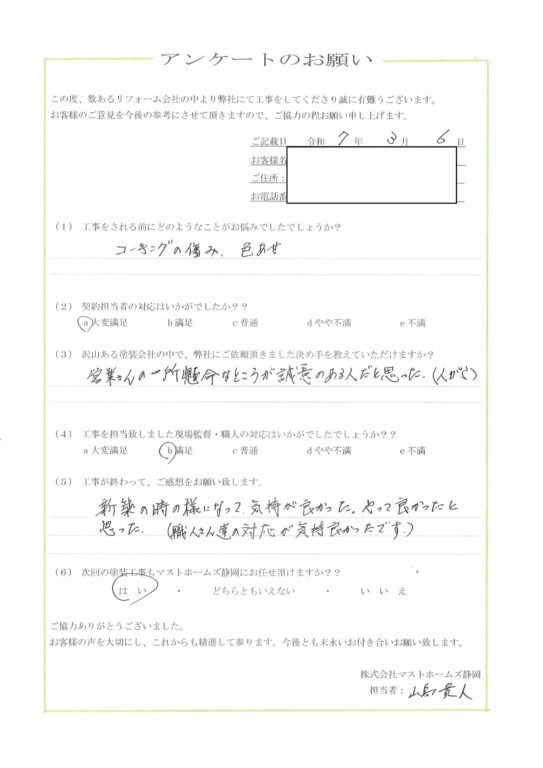 アンケートのお願い
この度、数あるリフォーム会社の中より弊社にて工事をしてくださり誠に有難うございます。
お客様のご意見を今後の参考にさせて頂きますので、ご協力の程お願い申し上げます。
ご記載日 令和 7 年 3 月 6 日
お客様名
ご住所:
お電話番
(1) 工事をされる前にどのようなことがお悩みでしたでしょうか?
コーキングの傷み、色あせ
(2) 契約担当者の対応はいかがでしたか??
a 大変満足 b 満足 c 普通 d やや不満 e 不満
(3) 沢山ある塗装会社の中で、弊社にご依頼頂きました決め手を教えていただけますか?
営業さんの一所懸命なところが誠意のある人だと思った。(人がら)
(4) 工事を担当致しました現場監督・職人の対応はいかがでしたでしょうか??
a 大変満足 b 満足 c 普通 d やや不満 e 不満
(5) 工事が終わって、ご感想をお願い致します。
新築の時の様になって、気持が良かった。やって良かったと
思った。(職人さん達の対応が気持良かったです。)
(6) 次回の塗装工事もマストホームズ静岡にお任せ頂けますか??
はい ・ どちらともいえない ・ いいえ
ご協力ありがとうございました。
お客様の声を大切にし、これからも精進して参ります。今後とも末永いお付き合いお願い致します。
株式会社マストホームズ静岡
担当者: